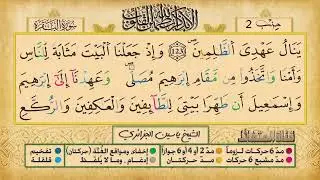 حزب 2
سورة البقرة
يَنَالُ عَهْدِى ٱلظَّٰلِمِينَ 123 وَإِذْ جَعَلْنَا ٱلْبَيْتَ مَثَابَةً لِّلنَّاسِ
وَأَمْنًا وَٱتَّخَذُوا۟ مِن مَّقَامِ إِبْرَٰهِيمَ مُصَلًّى وَعَهِدْنَآ إِلَىٰٓ إِبْرَٰهِيمَ
وَإِسْمَٰعِيلَ أَن طَهِّرَا بَيْتِىَ لِلطَّآئِفِينَ وَٱلْعَٰكِفِينَ وَٱلرُّكَّعِ
الشيخ ياسين الجزائري
مدّ 6 حركات لزوماً مدّ 2 أو 4 أو 6 جوازاً إخفاء ومواقع الغنّة (حركتان) تفخيم
مدّ مشبع 6 حركات مدّ حركتان إدغام، وما لا يُلفظ قلقلة